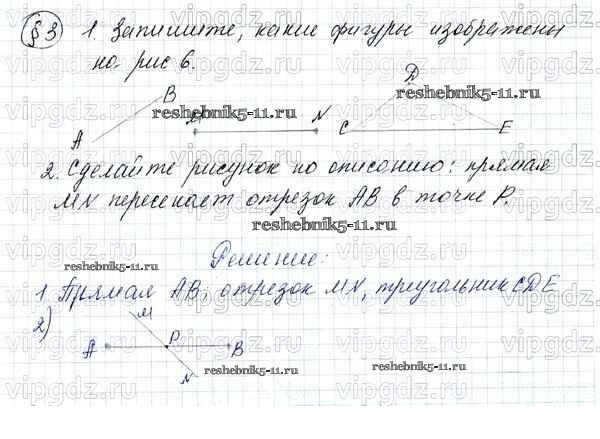 §3 1. Запишите, какие фигуры изображены
на рис 6.
D
B
reshebnik5-11.ru
reshebnik5-11.ru
M N
A
C E
2. Сделайте рисунок по описанию: прямая
MN пересекает отрезок AB в точке P.
reshebnik5-11.ru
Решение:
reshebnik5-11.ru
1 Прямая AB, отрезок MN, треугольник CDE
2)
M
A P B
N
reshebnik5-11.ru
reshebnik5-11.ru
vipgdz.com